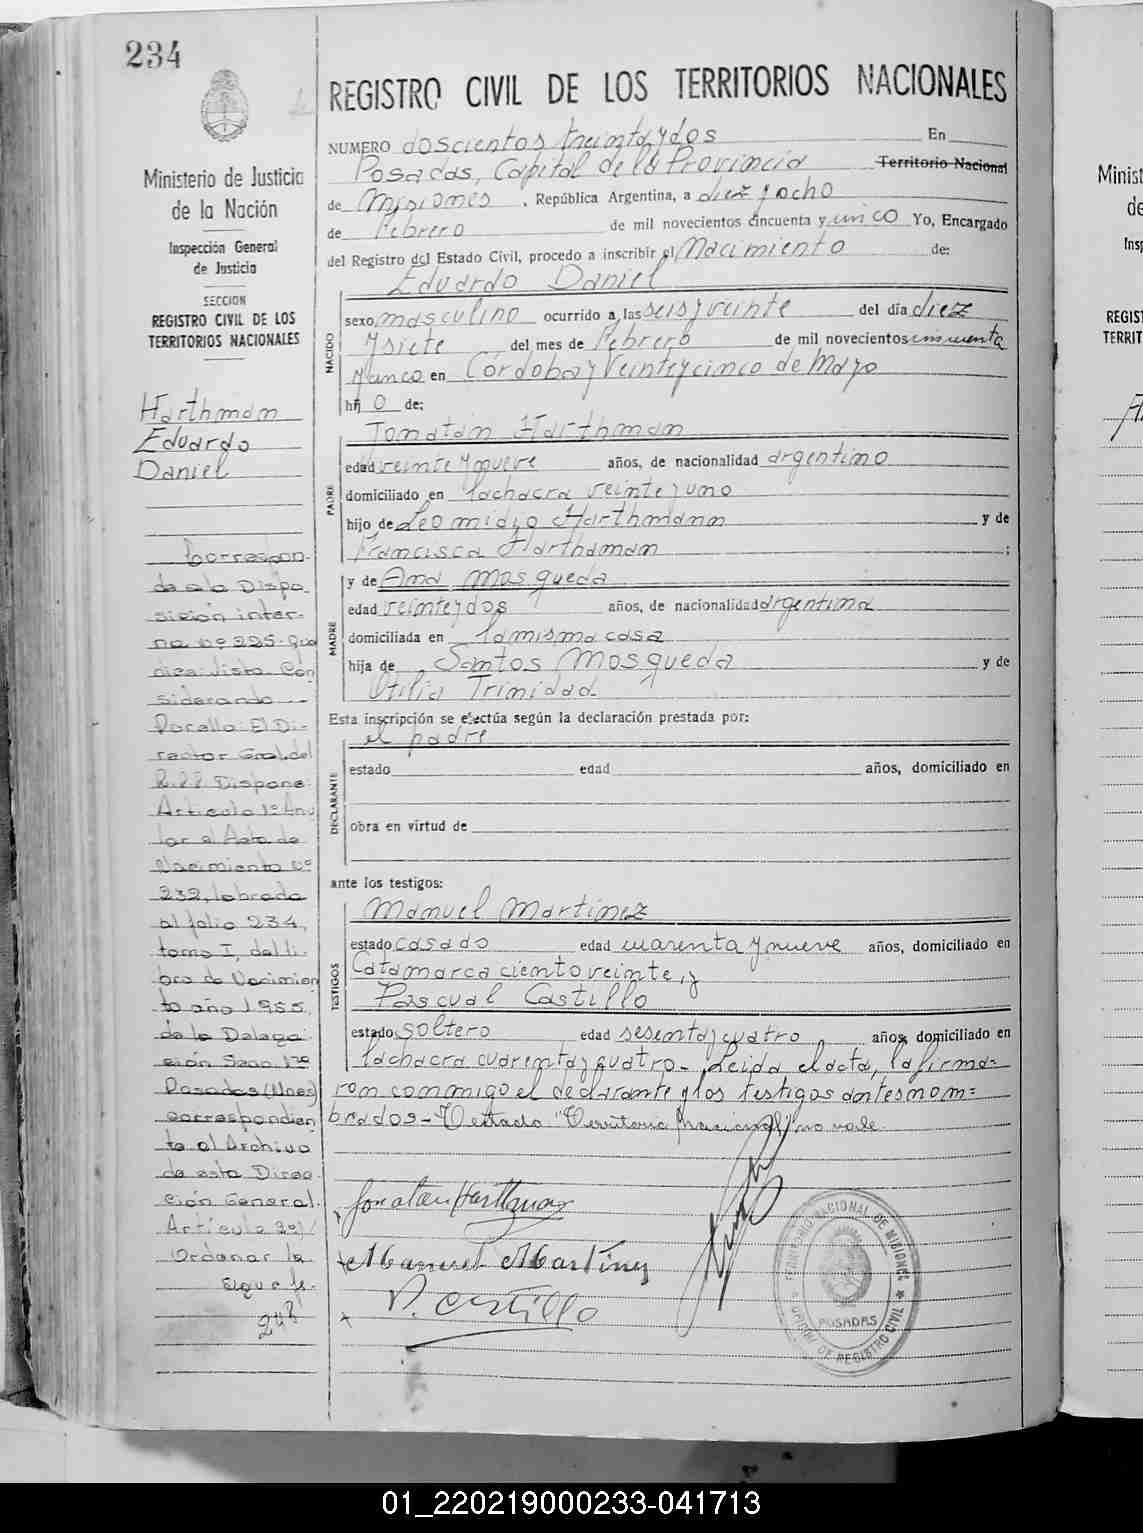 234
Ministerio de Justicia
de la Nación
Inspección General
de Justicia
SECCION
REGISTRO CIVIL DE LOS
TERRITORIOS NACIONALES
Harthman
Eduardo
Daniel
Correspon-
de a la Dispo-
sición inter-
na nº 225- que
dice: Visto, Con
siderando ---
Por ello: El Di-
rector Gral. del
R.P.P. Dispone:
Artículo 1º Anu
lar el Acta de
Nacimiento nº
232, labrada
al folio 234,
tomo I, del li-
bro de Nacimien
to año 1955,
de la Delega-
ción Secc. 1ra
Posadas (Mnes)
correspondien
te al Archivo
de esta Direc
ción General.
Artículo 2º)/
Ordenar la
Sigue fº.
248
REGISTRO CIVIL DE LOS TERRITORIOS NACIONALES
NUMERO doscientos treinta y dos En
Posadas, Capital de la Provincia Territorio Nacional
de Misiones, República Argentina, a diez y ocho
de Febrero de mil novecientos cincuenta y cinco Yo, Encargado
del Registro del Estado Civil, procedo a inscribir el Nacimiento de:
Eduardo Daniel
NACIDO
sexo masculino ocurrido a las seis y veinte del día diez
y siete del mes de Febrero de mil novecientos cincuenta
y cinco en Córdoba y Veinte y cinco de Mayo
hij o de:
PADRE
Jonatán Harthman
edad veinte y nueve años, de nacionalidad argentino
domiciliado en la chacra veinte y uno
hijo de Leonidzo Harthmann y de
Francisca Harthaman ;
MADRE
y de Ana Mosqueda
edad veinte y dos años, de nacionalidad argentina
domiciliada en la misma casa
hija de Santos Mosqueda y de
Otilia Trinidad.
Esta inscripción se efectúa según la declaración prestada por:
DECLARANTE
el padre
estado edad años, domiciliado en
obra en virtud de
ante los testigos:
TESTIGOS
Manuel Martinez
estado casado edad cuarenta y nueve años, domiciliado en
Catamarca ciento veinte, y
Pascual Castillo
estado soltero edad sesenta y cuatro años, domiciliado en
la chacra cuarenta y cuatro.- Leida el acta, la firma=
ron conmigo el declarante y los testigos antes nom=
brados - Testado "Territorio Nacional" no vale.
Jonatan Harthman
Manuel Martinez
P. Castillo
TERRITORIO NACIONAL DE MISIONES
POSADAS
OFICINA DE REGISTRO CIVIL
Minist
de
Insp
REGIST
TERRIT
01_220219000233-041713